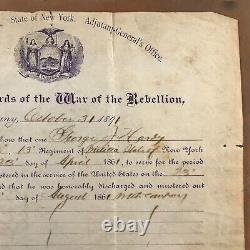 State of New York.
Adjutant-General's Office.
EXCELSIOR
rds of the War of the Rebellion,
ny, October 31 1891
how that one George J. Hardy
13" Regiment of Militia State of New York
day of April 1861, to serve for the period
mustered in the service of the United States on the 23"
nd that he was honorably discharged and mustered out
" day of August 1861 with company